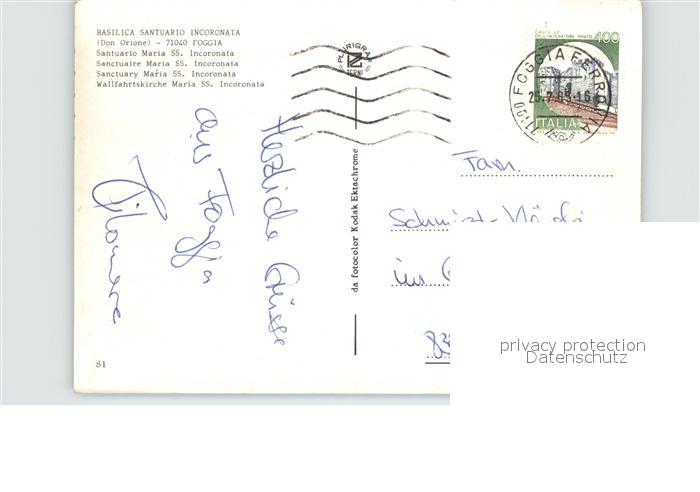 BASILICA SANTUARIO INCORONATA
(Don Orione) - 71040 FOGGIA
Santuario Maria SS. Incoronata
Sanctuaire Maria SS. Incoronata
Sanctuary Maria SS. Incoronata
Wallfahrtskirche Maria SS. Incoronata
PLURIGRAF
TERNI
CASTELLO DELL'IMPERATORE PRATO 400
ITALIA
FOGGIA FERROVIA
Herzliche Grüsse
aus Foggia
Filomena
da fotocolor Kodak Ektachrome
Fam.
im
81
privacy protection
Datenschutz